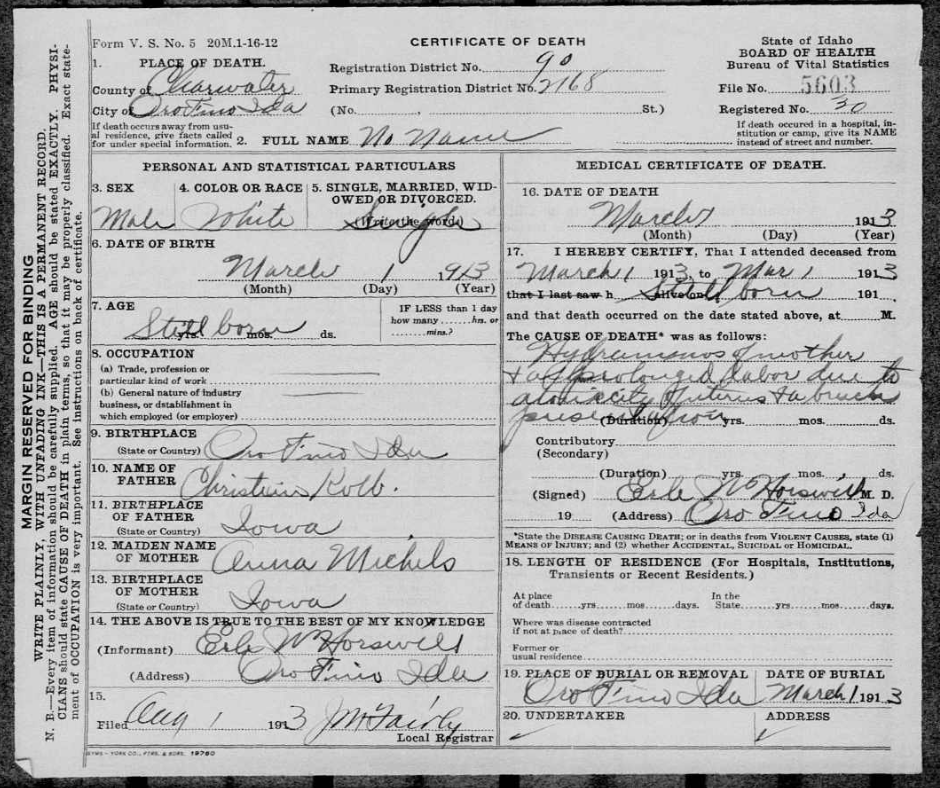 MARGIN RESERVED FOR BINDING
WRITE PLAINLY, WITH UNFADING INK—THIS IS A PERMANENT RECORD.
N. B.—Every item of information should be carefully supplied. AGE should be stated EXACTLY. PHYSI-
CIANS should state CAUSE OF DEATH in plain terms, so that it may be properly classified. Exact state-
ment of OCCUPATION is very important. See instructions on back of certificate.
Form V. S. No. 5 20M.1-16-12
CERTIFICATE OF DEATH
State of Idaho
BOARD OF HEALTH
Bureau of Vital Statistics
1. PLACE OF DEATH.
County of Clearwater
City of Oro Fino Ida
Registration District No. 90
Primary Registration District No. 2168
(No. St.)
File No. 5603
Registered No. 30
If death occurs away from usu-
al residence, give facts called
for under special information.
If death occured in a hospital, in-
stitution or camp, give its NAME
instead of street and number.
2. FULL NAME No Name
PERSONAL AND STATISTICAL PARTICULARS
3. SEX
Male
4. COLOR OR RACE
White
5. SINGLE, MARRIED, WID-
OWED OR DIVORCED.
(Write the word)
Single
6. DATE OF BIRTH
March 1 1913
(Month) (Day) (Year)
7. AGE
Still born
yrs. mos. ds.
IF LESS than 1 day
how many hrs. or
mins.?
8. OCCUPATION
(a) Trade, profession or
particular kind of work
(b) General nature of industry
business, or dstablishment in
which employed (or employer)
9. BIRTHPLACE
(State or Country) Oro Fino Ida
10. NAME OF
FATHER Christein Kolb.
11. BIRTHPLACE
OF FATHER
(State or Country) Iowa
12. MAIDEN NAME
OF MOTHER Anna Michels
13. BIRTHPLACE
OF MOTHER
(State or Country) Iowa
14. THE ABOVE IS TRUE TO THE BEST OF MY KNOWLEDGE
(Informant) Erle W Horswill
(Address) Oro Fino Ida
15.
Filed Aug 1 1913 J M Fairly
Local Registrar
MEDICAL CERTIFICATE OF DEATH.
16. DATE OF DEATH
March 1 1913
(Month) (Day) (Year)
17. I HEREBY CERTIFY, That I attended deceased from
March 1 1913, to Mar 1 1913
that I last saw h alive on Still born 191
and that death occurred on the date stated above, at M.
The CAUSE OF DEATH* was as follows:
of mother
prolonged labor due to
of uterus
presentation
(Duration) yrs. mos. ds.
Contributory
(Secondary)
(Duration) yrs. mos. ds.
(Signed) Erle W Horswill M. D.
19 (Address) Oro Fino Ida
*State the DISEASE CAUSING DEATH; or in deaths from VIOLENT CAUSES, state (1)
MEANS OF INJURY; and (2) whether ACCIDENTAL, SUICIDAL or HOMICIDAL.
18. LENGTH OF RESIDENCE (For Hospitals, Institutions,
Transients or Recent Residents.)
At place
of death yrs mos days.
In the
State yrs mos days.
Where was disease contracted
if not at place of death?
Former or
usual residence
19. PLACE OF BURIAL OR REMOVAL
Oro Fino Ida
DATE OF BURIAL
March 1 1913
20. UNDERTAKER
ADDRESS
SYMS - YORK CO., PTRS. & BDRS. 19760